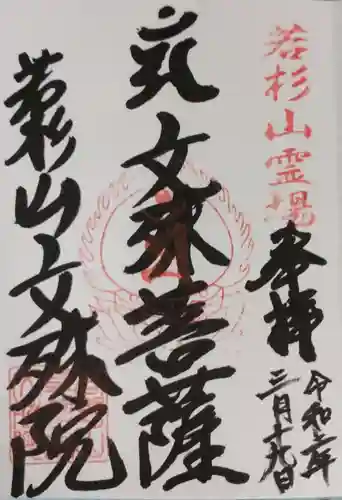 若杉山霊場
奉拝
令和二年
三月十九日
文殊菩薩
若杉山文殊院